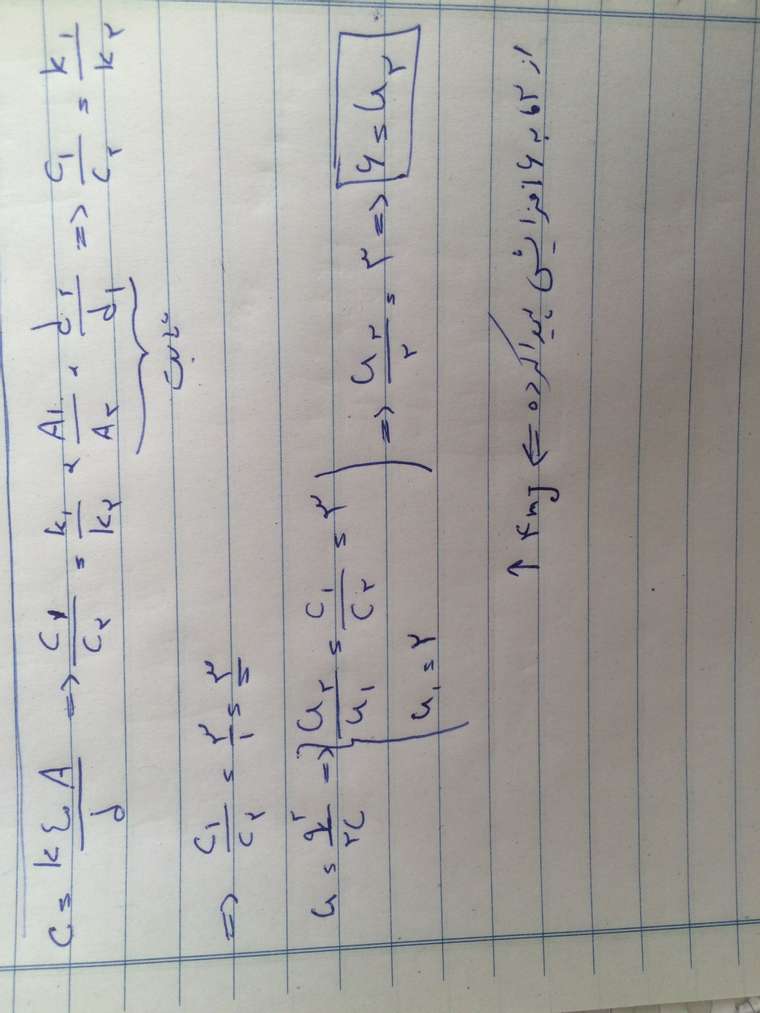 C = kε₀A/d => C₁/C₂ = k₁/k₂ × A₁/A₂ × d₂/d₁ => C₁/C₂ = k₁/k₂
ثابت
=> C₁/C₂ = ۳/۱ = ۳
u = q²/۲C => u₂/u₁ = C₁/C₂ = ۳
u₁ = ۲
=> u₂/۲ = ۳ => ۶ = u₂
از ۲ به ۶ افزایش پیدا کرده <= ۴ mJ ↑